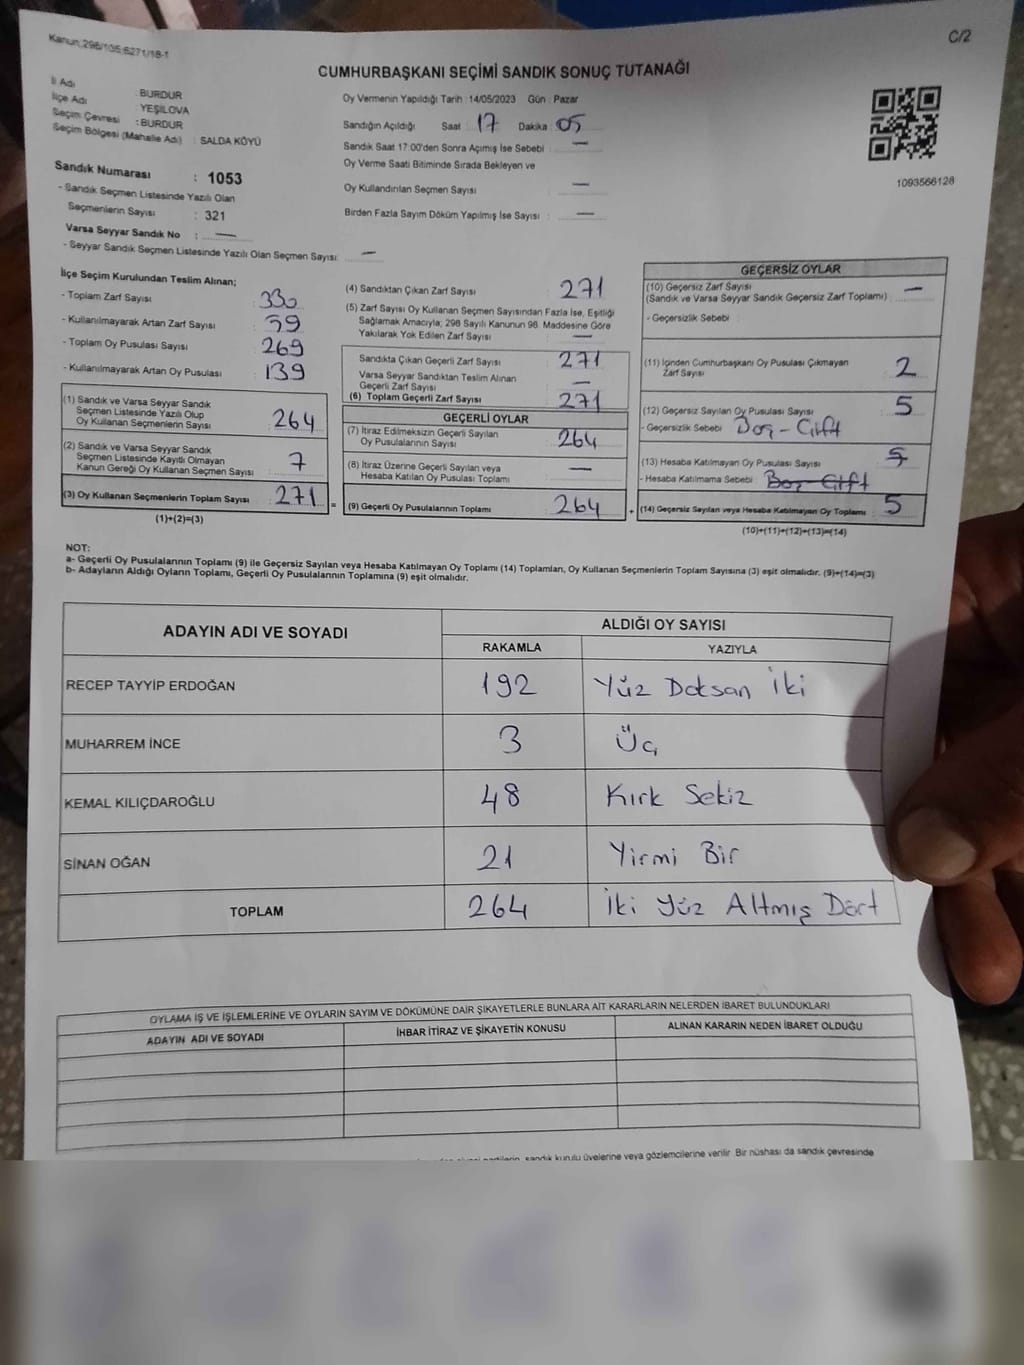 Kanun;296/105;6271/18-1
C/2
CUMHURBAŞKANI SEÇİMİ SANDIK SONUÇ TUTANAĞI
İl Adı : BURDUR
İlçe Adı : YEŞİLOVA
Seçim Çevresi : BURDUR
Seçim Bölgesi (Mahalle Adı) : SALDA KÖYÜ
Oy Vermenin Yapıldığı Tarih : 14/05/2023 Gün : Pazar
Sandığın Açıldığı Saat : 17 Dakika : 05
Sandık Saat 17:00'den Sonra Açılmış İse Sebebi : —
Oy Verme Saati Bitiminde Sırada Bekleyen ve
Oy Kullandırılan Seçmen Sayısı : —
Birden Fazla Sayım Döküm Yapılmış İse Sayısı : —
1093566128
Sandık Numarası : 1053
- Sandık Seçmen Listesinde Yazılı Olan
Seçmenlerin Sayısı : 321
Varsa Seyyar Sandık No : —
- Seyyar Sandık Seçmen Listesinde Yazılı Olan Seçmen Sayısı: —
İlçe Seçim Kurulundan Teslim Alınan;
- Toplam Zarf Sayısı : 330
- Kullanılmayarak Artan Zarf Sayısı : 59
- Toplam Oy Pusulası Sayısı : 269
- Kullanılmayarak Artan Oy Pusulası : 139
(1) Sandık ve Varsa Seyyar Sandık
Seçmen Listesinde Yazılı Olup
Oy Kullanan Seçmenlerin Sayısı : 264
(2) Sandık ve Varsa Seyyar Sandık
Seçmen Listesinde Kayıtlı Olmayan
Kanun Gereği Oy Kullanan Seçmen Sayısı : 7
(3) Oy Kullanan Seçmenlerin Toplam Sayısı : 271 =
(1)+(2)=(3)
(4) Sandıktan Çıkan Zarf Sayısı : 271
(5) Zarf Sayısı Oy Kullanan Seçmen Sayısından Fazla İse, Eşitliği
Sağlamak Amacıyla; 298 Sayılı Kanunun 98. Maddesine Göre
Yakılarak Yok Edilen Zarf Sayısı : —
Sandıkta Çıkan Geçerli Zarf Sayısı : 271
Varsa Seyyar Sandıktan Teslim Alınan
Geçerli Zarf Sayısı : —
(6) Toplam Geçerli Zarf Sayısı : 271
GEÇERLİ OYLAR
(7) İtiraz Edilmeksizin Geçerli Sayılan
Oy Pusulalarının Sayısı : 264
(8) İtiraz Üzerine Geçerli Sayılan veya
Hesaba Katılan Oy Pusulası Toplamı : —
(9) Geçerli Oy Pusulalarının Toplamı : 264 +
GEÇERSİZ OYLAR
(10) Geçersiz Zarf Sayısı
(Sandık ve Varsa Seyyar Sandık Geçersiz Zarf Toplamı) : —
- Geçersizlik Sebebi :
(11) İçinden Cumhurbaşkanı Oy Pusulası Çıkmayan
Zarf Sayısı : 2
(12) Geçersiz Sayılan Oy Pusulası Sayısı : 5
- Geçersizlik Sebebi : Boş - Çift
(13) Hesaba Katılmayan Oy Pusulası Sayısı : 5
- Hesaba Katılmama Sebebi : Boş - Çift
(14) Geçersiz Sayılan veya Hesaba Katılmayan Oy Toplamı : 5
(10)+(11)+(12)+(13)=(14)
NOT:
a- Geçerli Oy Pusulalarının Toplamı (9) ile Geçersiz Sayılan veya Hesaba Katılmayan Oy Toplamı (14) Toplamları, Oy Kullanan Seçmenlerin Toplam Sayısına (3) eşit olmalıdır. (9)+(14)=(3)
b- Adayların Aldığı Oyların Toplamı, Geçerli Oy Pusulalarının Toplamına (9) eşit olmalıdır.
ADAYIN ADI VE SOYADI
ALDIĞI OY SAYISI
RAKAMLA YAZIYLA
RECEP TAYYİP ERDOĞAN 192 Yüz Doksan İki
MUHARREM İNCE 3 Üç
KEMAL KILIÇDAROĞLU 48 Kırk Sekiz
SİNAN OĞAN 21 Yirmi Bir
TOPLAM 264 İki Yüz Altmış Dört
OYLAMA İŞ VE İŞLEMLERİNE VE OYLARIN SAYIM VE DÖKÜMÜNE DAİR ŞİKAYETLERLE BUNLARA AİT KARARLARIN NELERDEN İBARET BULUNDUKLARI
ADAYIN ADI VE SOYADI İHBAR İTİRAZ VE ŞİKAYETİN KONUSU ALINAN KARARIN NEDEN İBARET OLDUĞU
sandık kurulu üyelerine veya gözlemcilerine verilir. Bir nüshası da sandık çevresinde